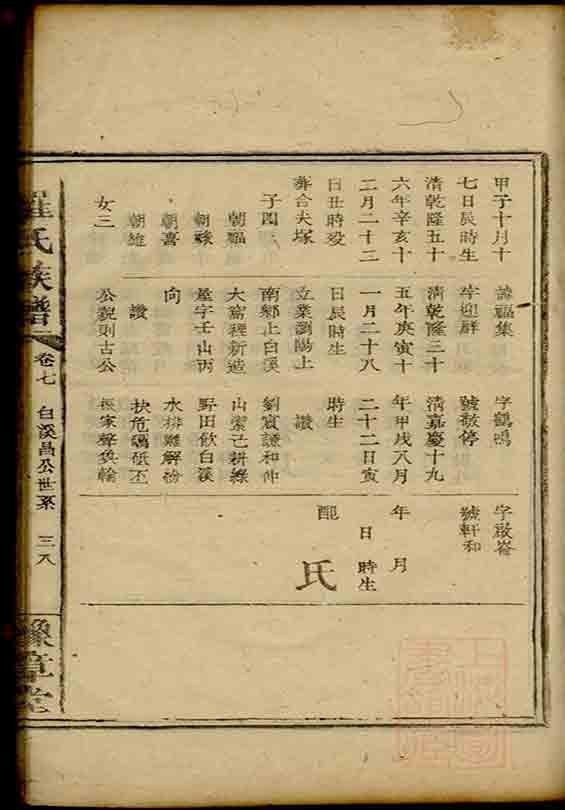 甲子十月十
七日辰時生
清乾隆五十
六年辛亥十
二月二十三
日丑時歿
葬合夫塚
子四
朝福
朝
朝喜
朝雄
女三
福集
字迎祥
清乾隆三十
五年庚寅十
一月二十八
日辰時生
立業瀏陽上
南鄉上白溪
大窩裡新造
屋字壬山丙
向
讚
公貌則古公
字鶴鳴
號敬停
清嘉慶十九
年甲戌八月
二十二日寅
時生
讚
劉寬謙和仲
山素己耕綠
野田飲白溪
水排難解紛
扶危礪砥丕
振家聲奐輪
字啟崙
號軒和
年 月
日 時生
配 氏
羅氏族譜
卷七 白溪昌公世系 三八
豫章堂